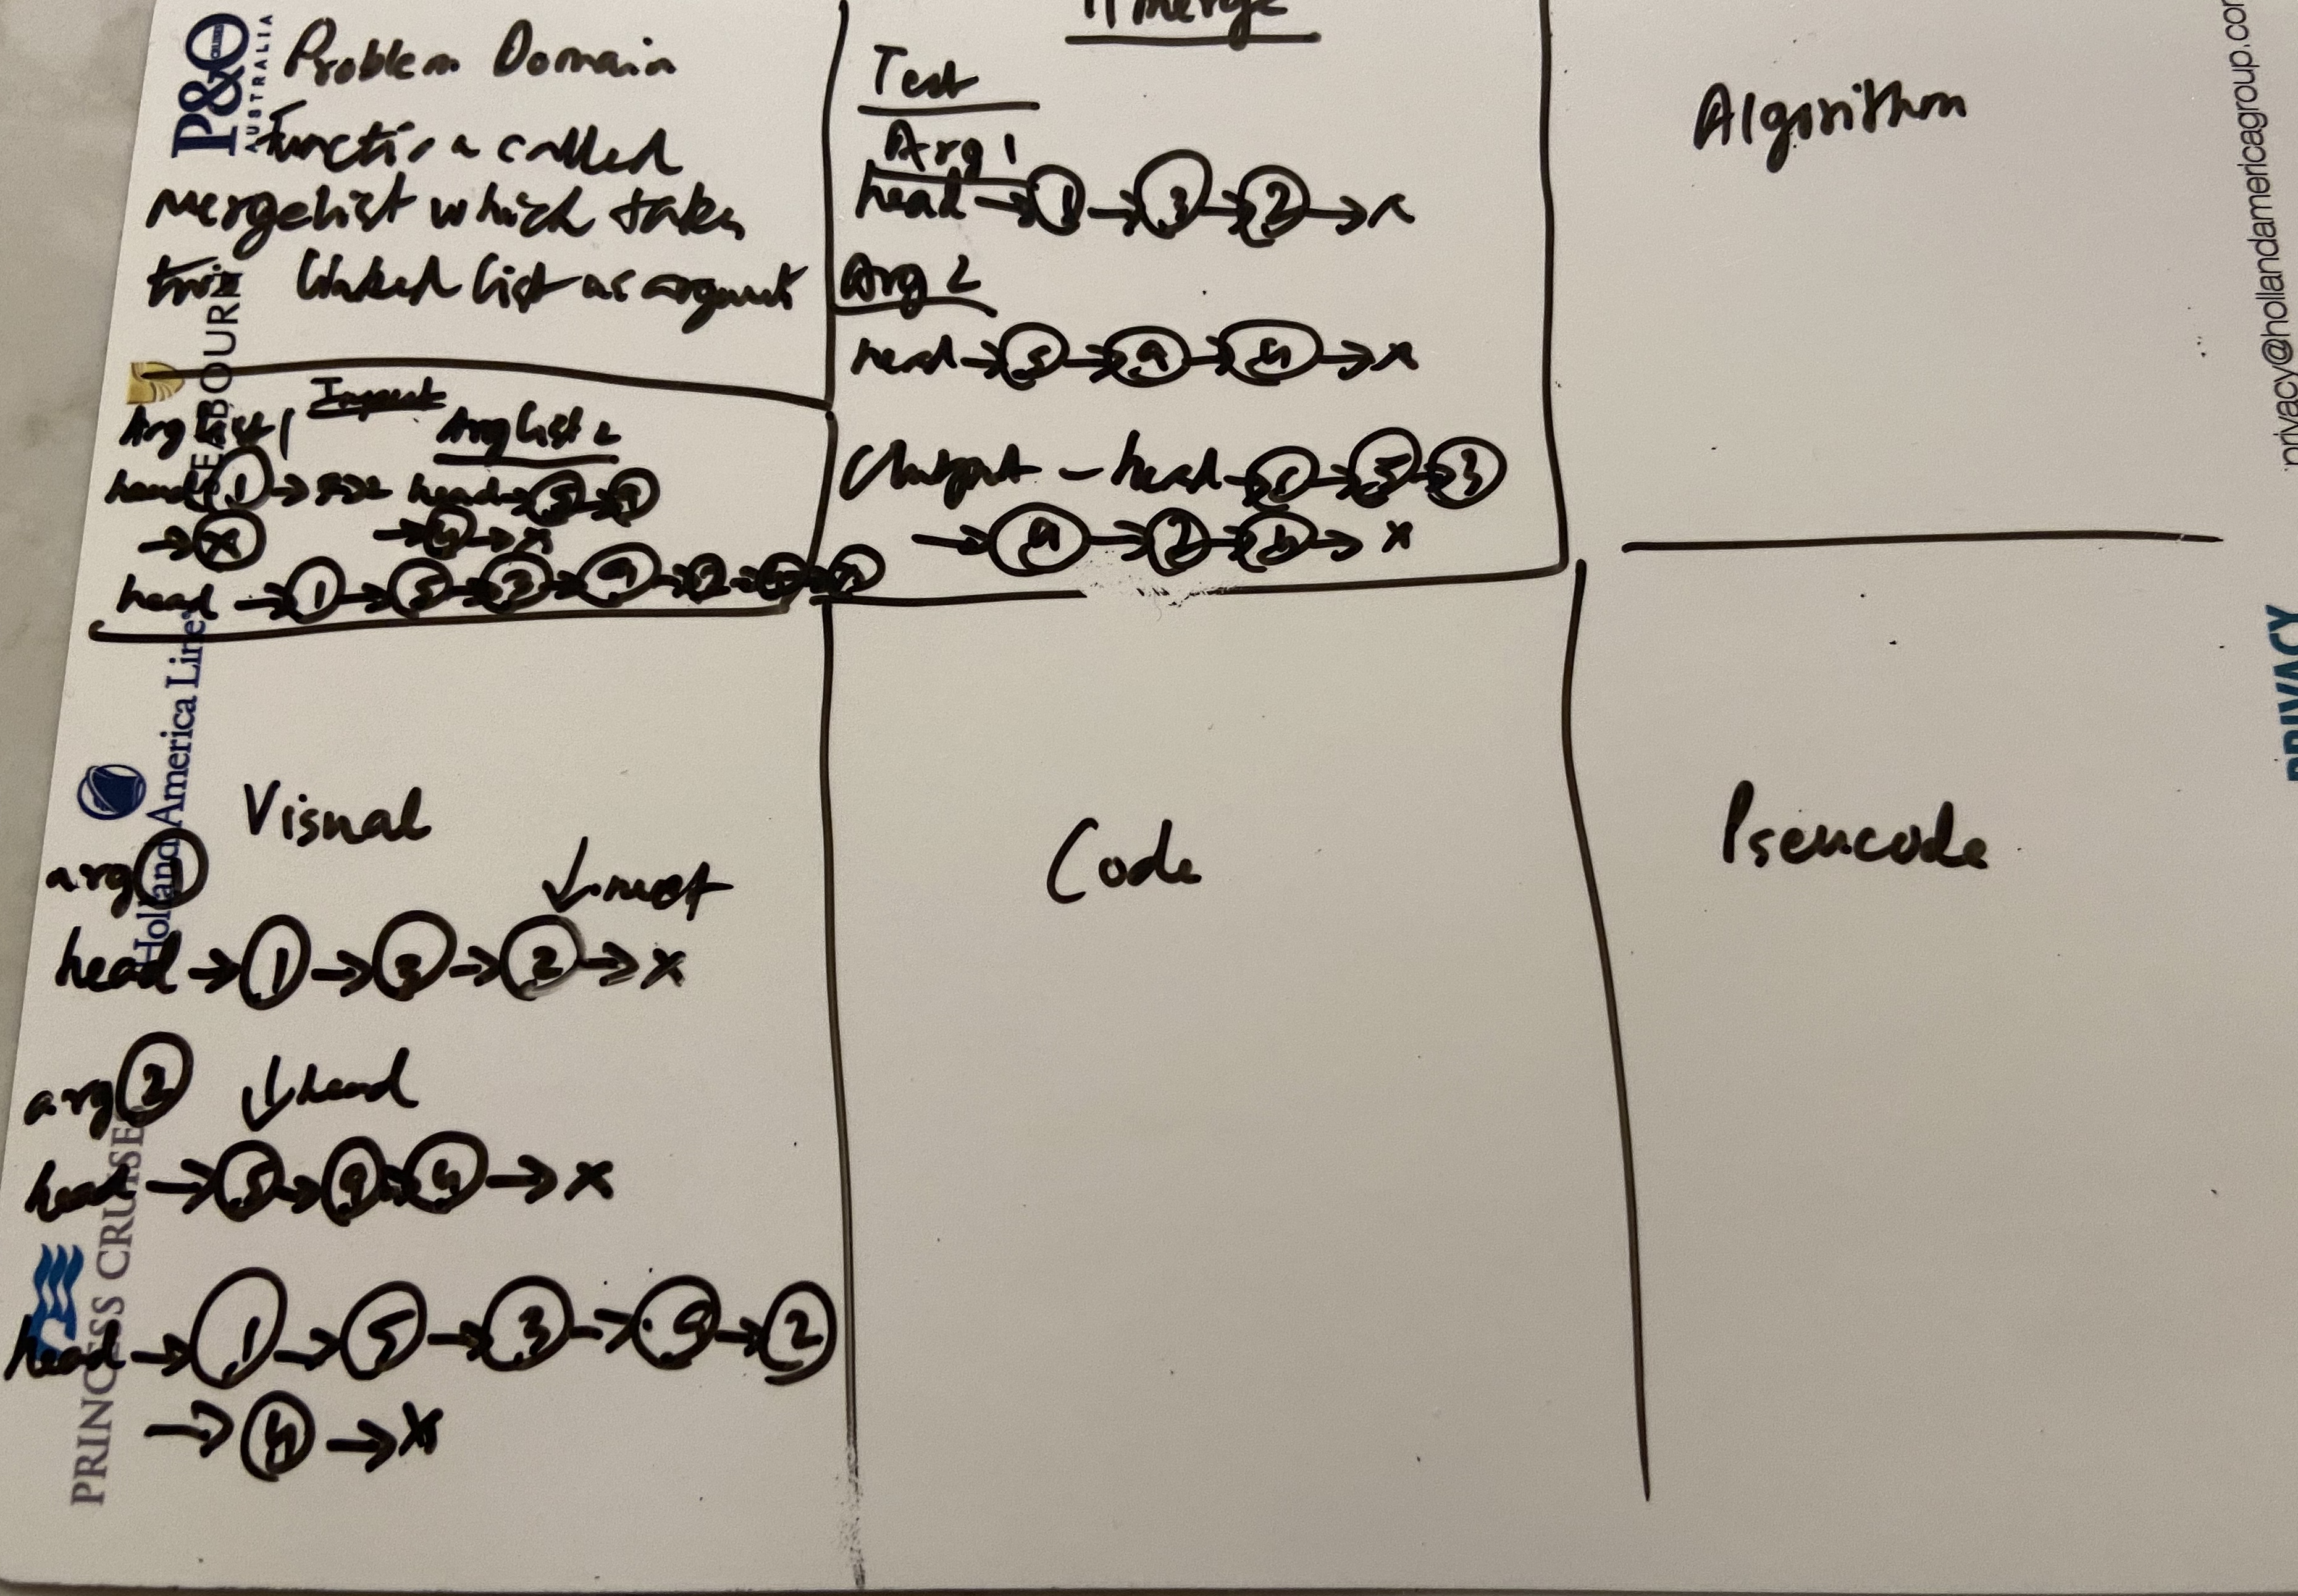 Problem Domain
Function called
mergelist which takes
two linked list as argument
Input
Arg list 1
Arg list 2
head → 1 →
head → 5 → 9
→ x
→ 4 → x
head → 1 → 5 → 3 → 9 → 2 → 4 → x
merge
Test
Arg 1
head → 1 → 3 → 2 → x
Arg 2
head → 5 → 9 → 4 → x
Output - head → 1 → 5 → 3
→ 9 → 2 → 4 → x
Algorithm
Visual
arg 1
↓ next
head → 1 → 3 → 2 → x
arg 2
↓ head
head → 5 → 9 → 4 → x
head → 1 → 5 → 3 → 9 → 2
→ 4 → x
Code
Pseucode
P&O
CRUISES
AUSTRALIA
SEABOURN
Holland America Line
PRINCESS CRUISES
privacy@hollandamericagroup.co
PRIVACY